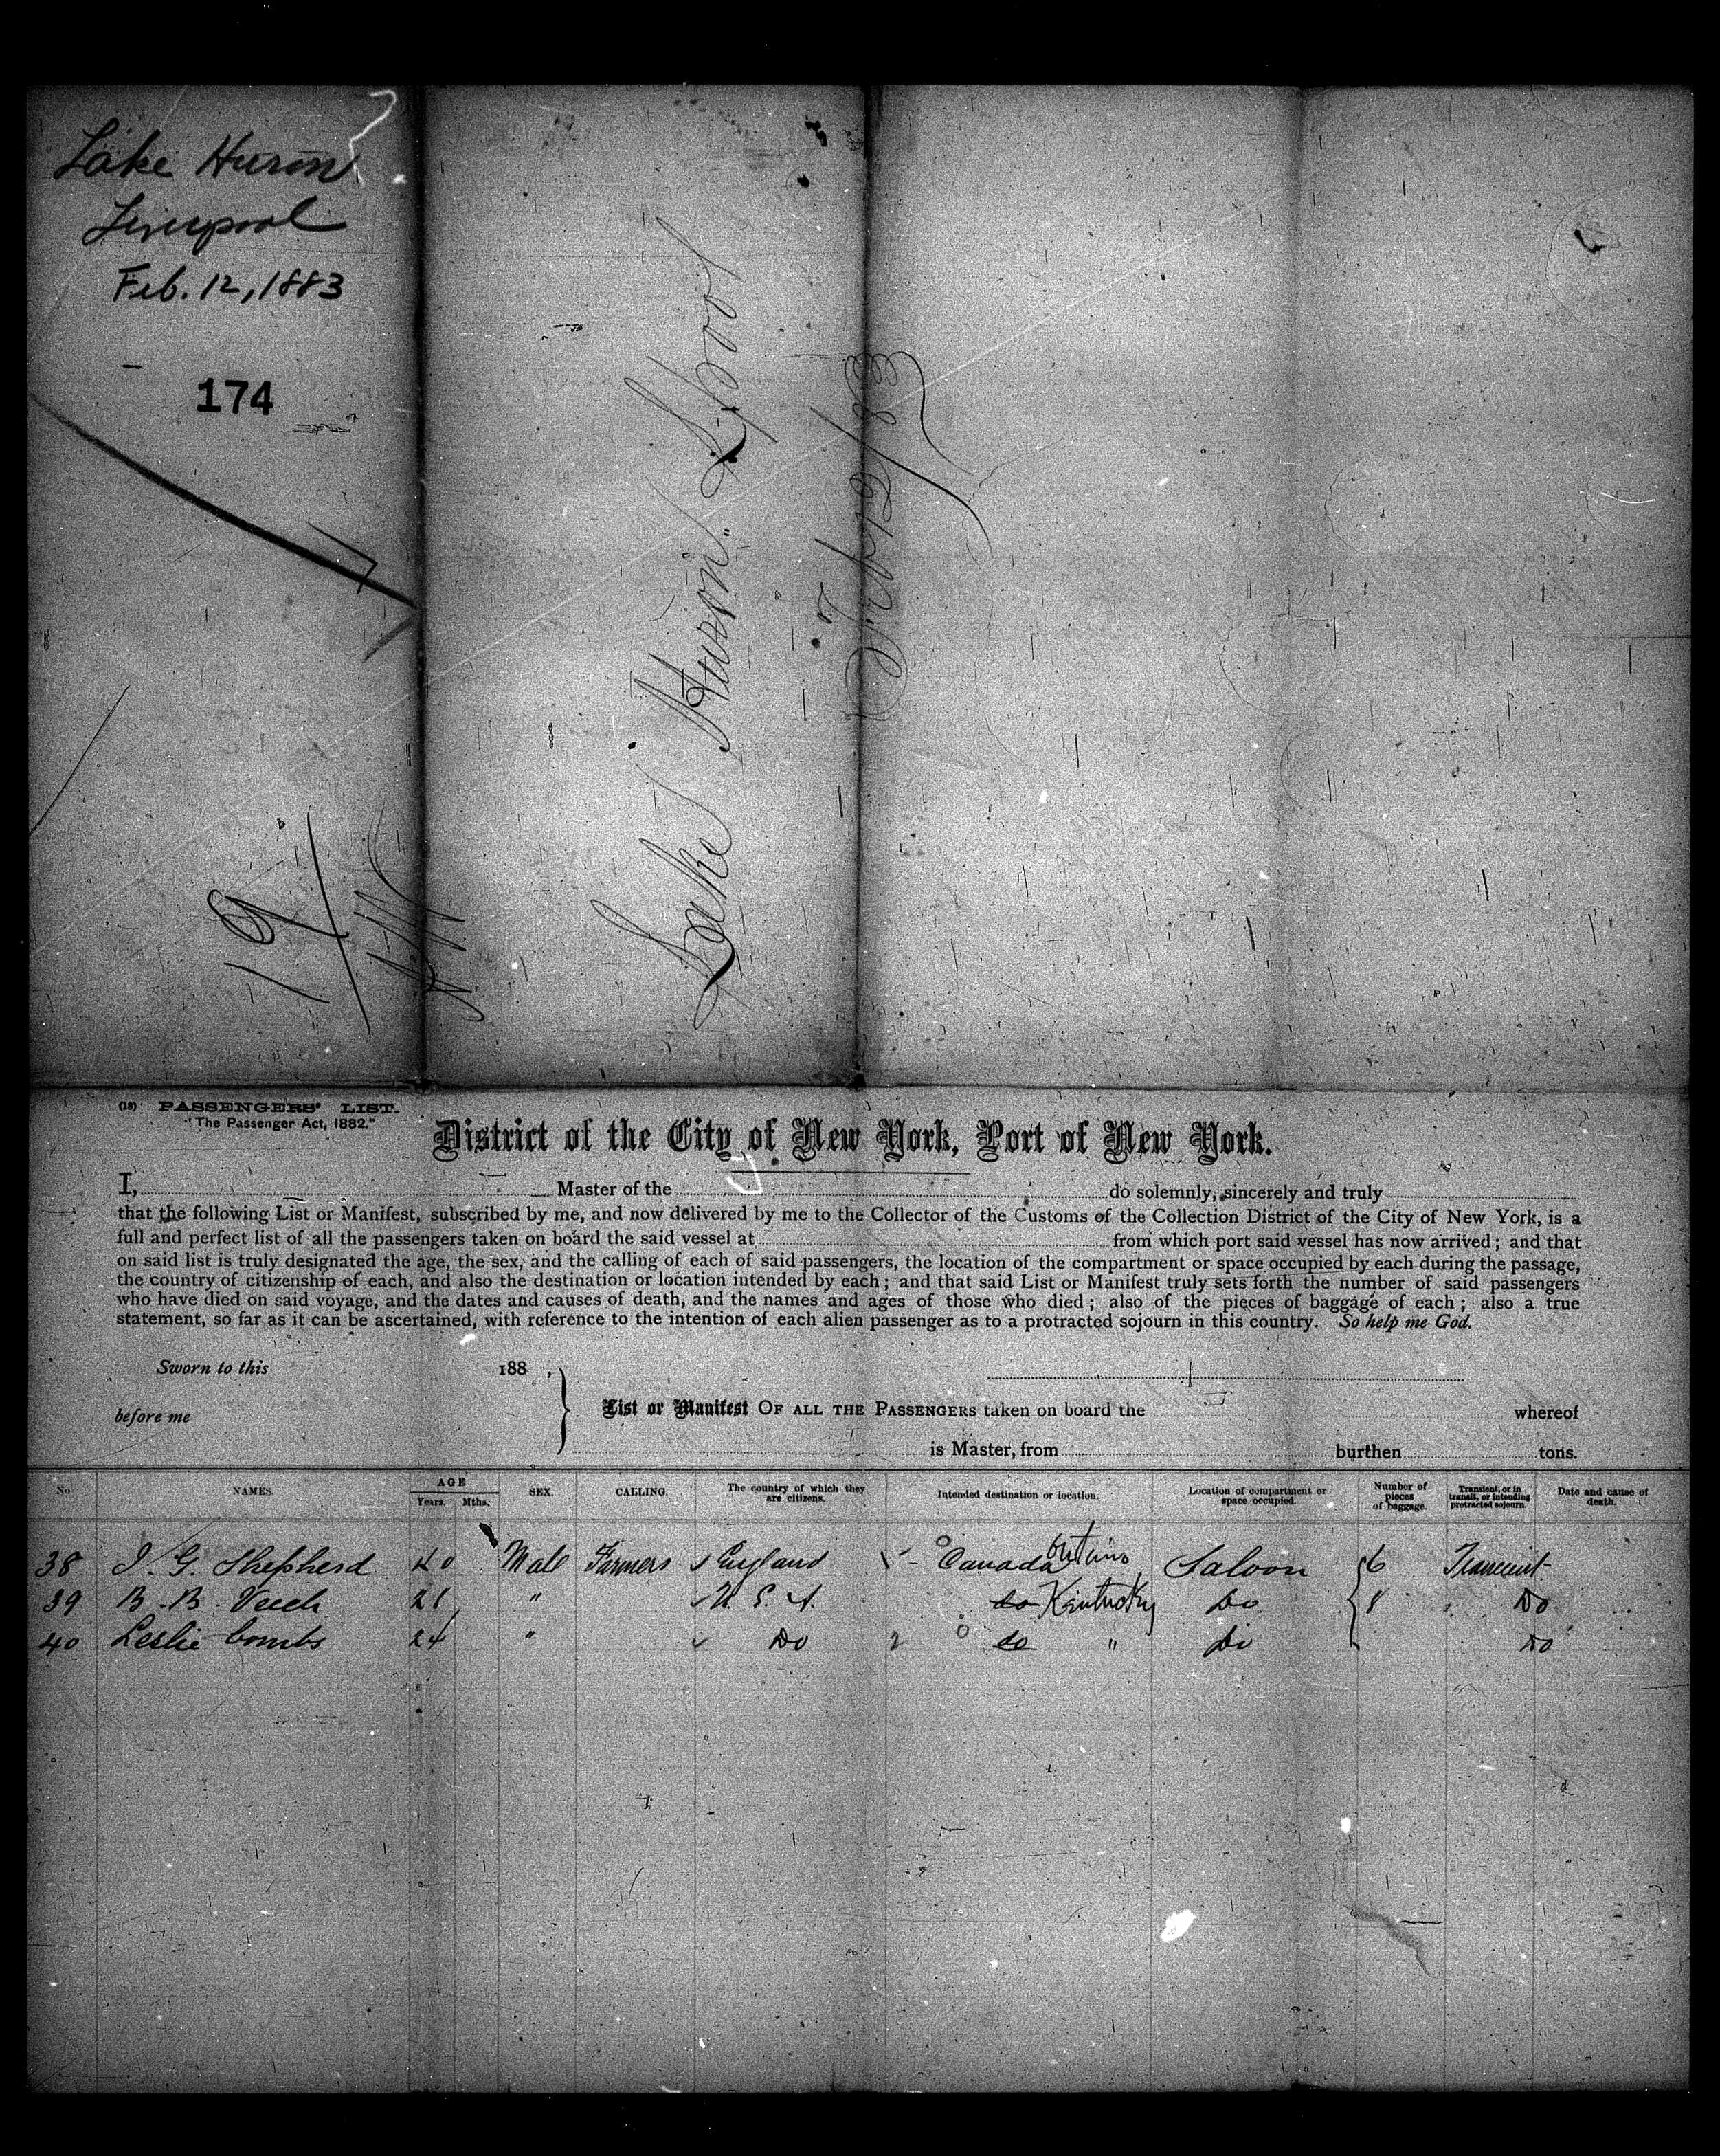 Lake Huron
Liverpool
Feb. 12, 1883
174
Lake Huron L'pool
Feb 12/83
19
(18) PASSENGERS' LIST.
"The Passenger Act, 1882."
District of the City of New York, Port of New York.
I, Master of the do solemnly, sincerely and truly
that the following List or Manifest, subscribed by me, and now delivered by me to the Collector of the Customs of the Collection District of the City of New York, is a
full and perfect list of all the passengers taken on board the said vessel at from which port said vessel has now arrived; and that
on said list is truly designated the age, the sex, and the calling of each of said passengers, the location of the compartment or space occupied by each during the passage,
the country of citizenship of each, and also the destination or location intended by each; and that said List or Manifest truly sets forth the number of said passengers
who have died on said voyage, and the dates and causes of death, and the names and ages of those who died; also of the pieces of baggage of each; also a true
statement, so far as it can be ascertained, with reference to the intention of each alien passenger as to a protracted sojourn in this country. So help me God.
Sworn to this 188 ,
before me
List or Manifest OF ALL THE PASSENGERS taken on board the whereof
is Master, from burthen tons.
No NAMES. AGE Years. Mths. SEX. CALLING. The country of which they are citizens. Intended destination or location. Location of compartment or space occupied. Number of pieces of baggage. Transient, or in transit, or intending protracted sojourn. Date and cause of death.
38 J. G. Shepherd 40 Male Farmers England Canada Saloon 6 Transient
39 B. B. Veech 21 " U. S. A. do Kentucky Do 8 Do
40 Leslie Combs 24 " Do do " Do Do